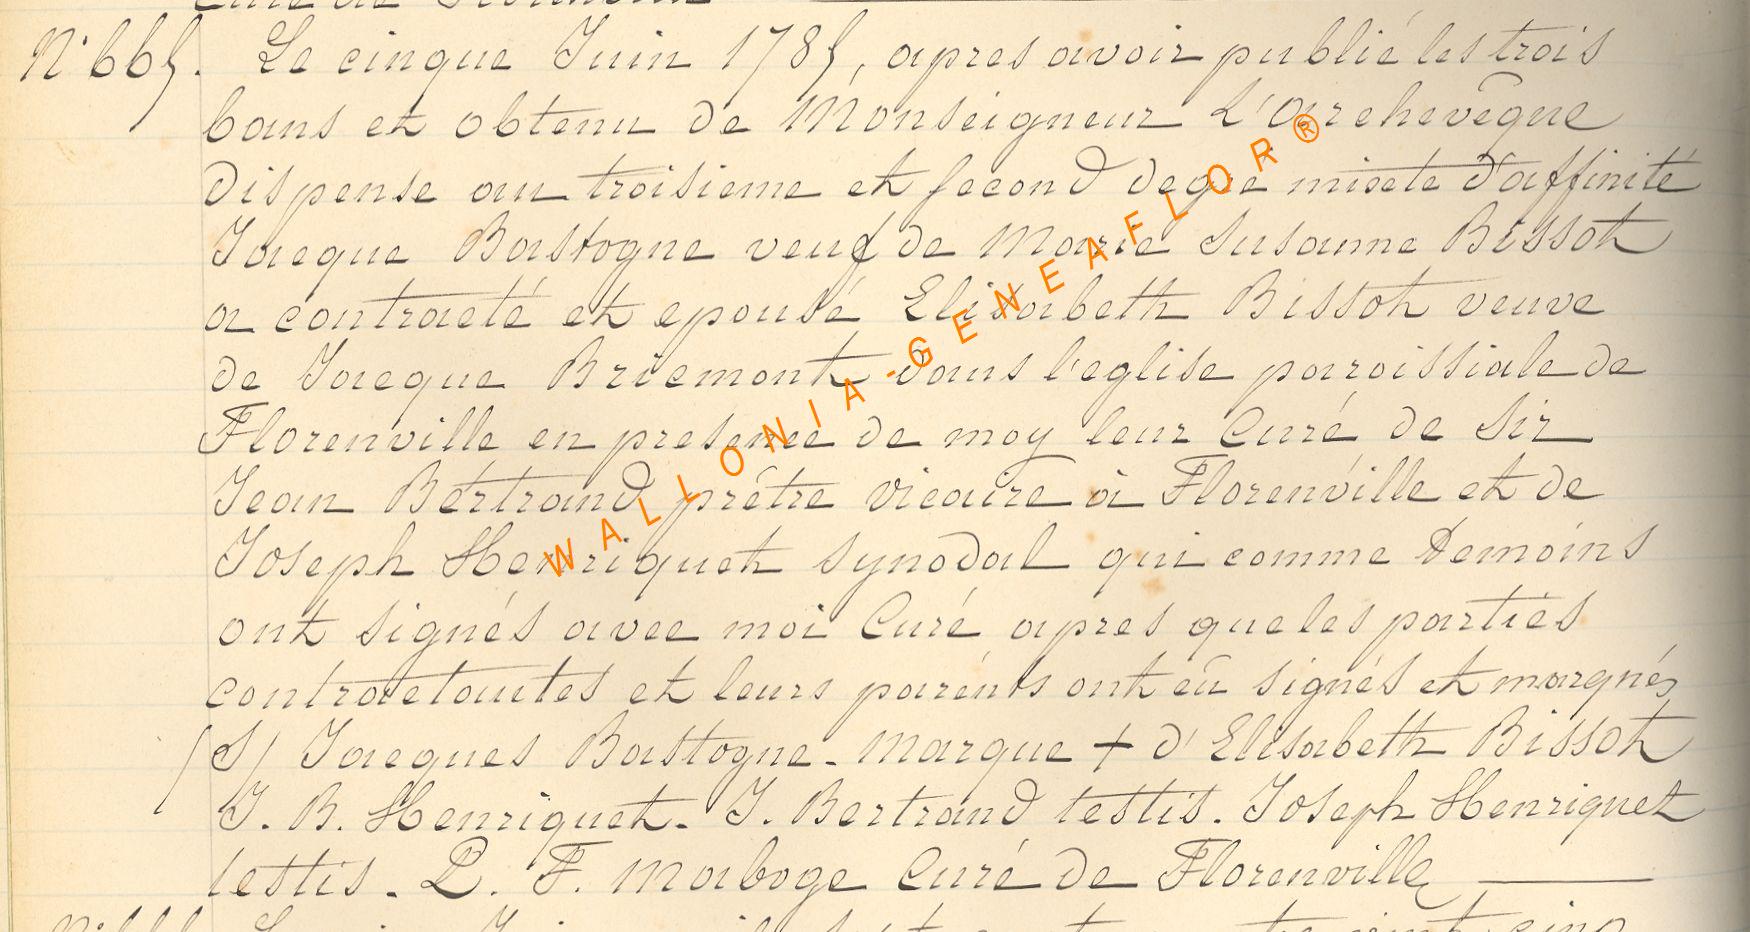 N° 665. Le cinque Juin 1785, apres avoir publié les trois
bans et obtenu de Monseigneur L'Archevêque
dispense au troisieme et second degré mixte d'affinité
Jacque Bastogne veuf de Marie Susanne Bissot
a contracté et epousé Elisabeth Bissot veuve
de Jacque Briemont dans l'eglise paroissiale de
Florenville en presence de moy leur Curé de Sir
Jean Bertrand prêtre vicaire à Florenville et de
Joseph Henriquet synodal qui comme temoins
ont signés avec moi Curé apres que les parties
contractantes et leurs parents ont eû signés et marqués
(S) Jacques Bastogne - marque + d'Elisabeth Bissot
J. B. Henriquet - J. Bertrand testis. Joseph Henriquet
testis - P. F. Maboge Curé de Florenville
WALLONIA-GENEAFLOR®